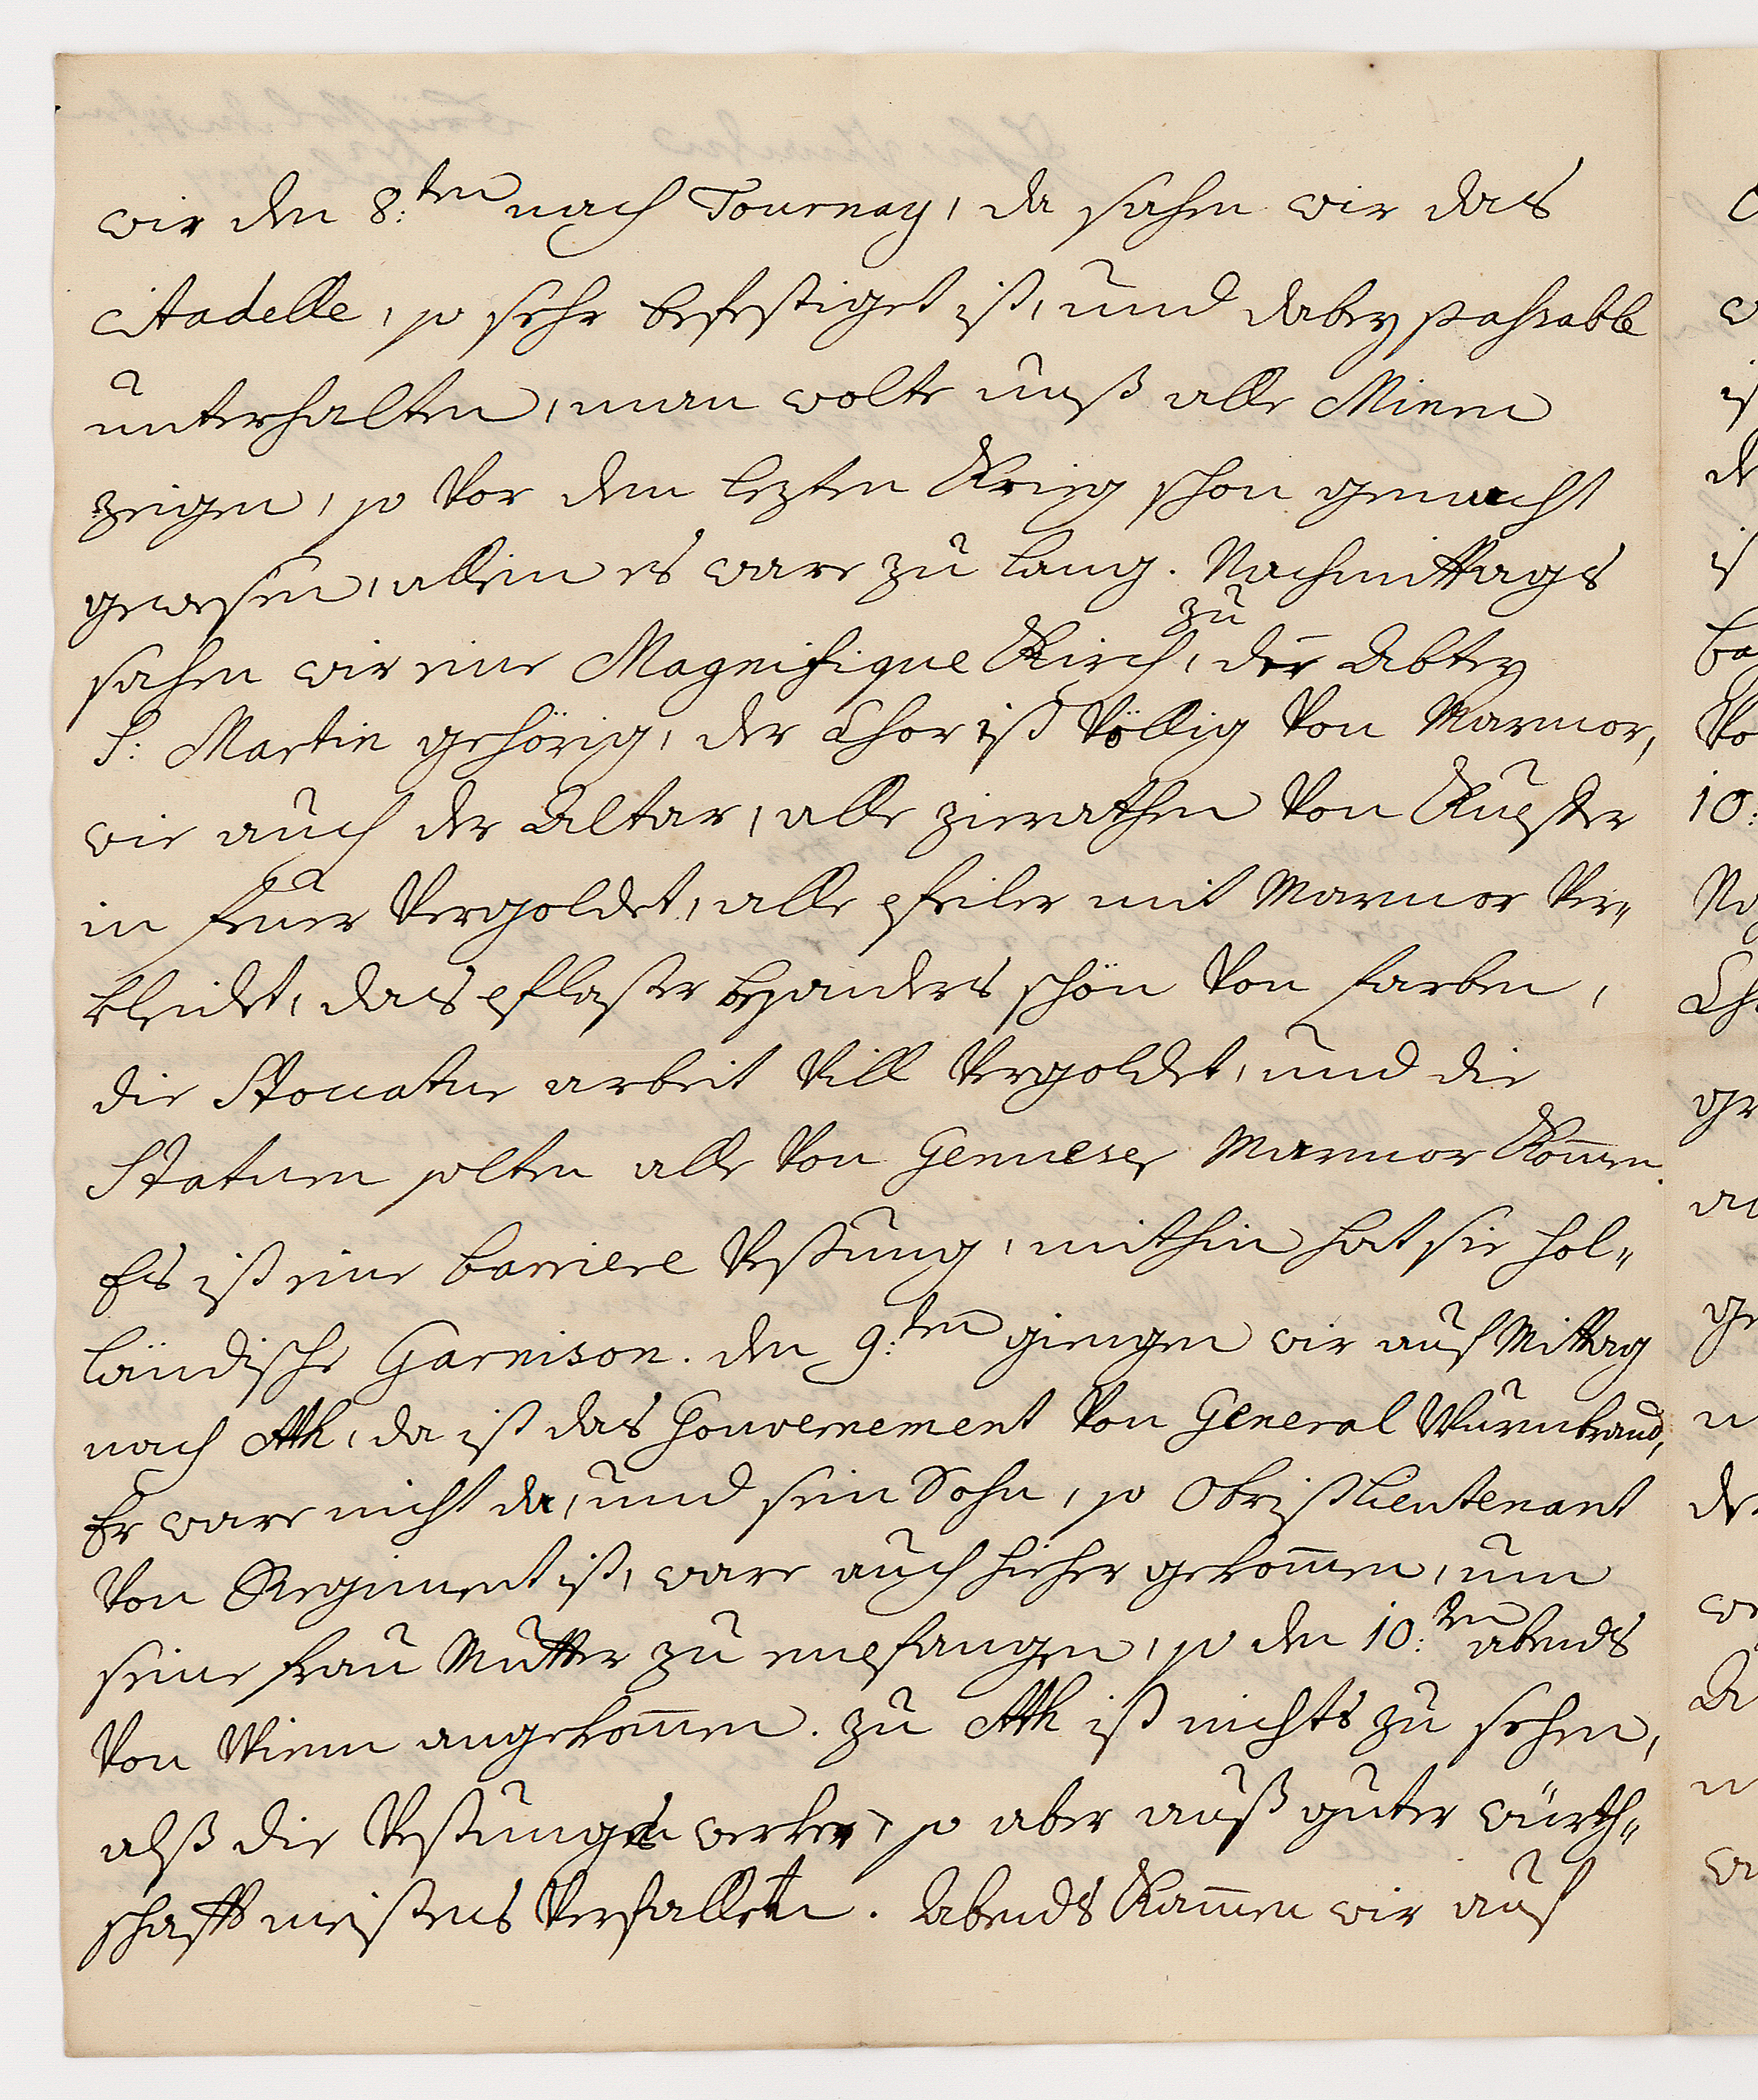 wir den 8:ten nach Tournay, da sahen wir das
citadelle, so sehr befestiget ist, und dabey pahsable
unterhalten, man wolte unß alle Minen
zeigen, so vor dem lezten Krieg schon gemacht
gewesen, allein es ware zu lang. Nachmittags
sahen wir eine Magnifique Kirch, zu der Abtey
S: Martin gehörig, der Chor ist völlig von Marmor,
wie auch der Altar, alle zierathen von Kupfer
in feuer vergoldet, alle pfeiler mit Marmor ver„
kleidet, das pflaster besonders schön von farben,
die Stoccatur arbeit vill vergoldet, und die
Statuen solten alle von Genueser Marmor kom̄en.
Es ist eine barriere Vestung, mithin hat sie hol„
ländische Garnison. den 9:ten giengen wir auf Mittag
nach Ath, da ist das Gouvernement von General Wurmbrand,
Er ware nicht da, und sein Sohn, so Obristlieutenant
von Regiment ist, ware auch hieher gekom̄en, um
seine frau Mutter zu empfangen, so den 10:ten abends
von Wienn angekom̄en. zu Ath ist nichts zu sehen,
alß die Vestungs werker, so aber auß guter würth„
schafft meistens verfallen. Abends kam̄en wir auf